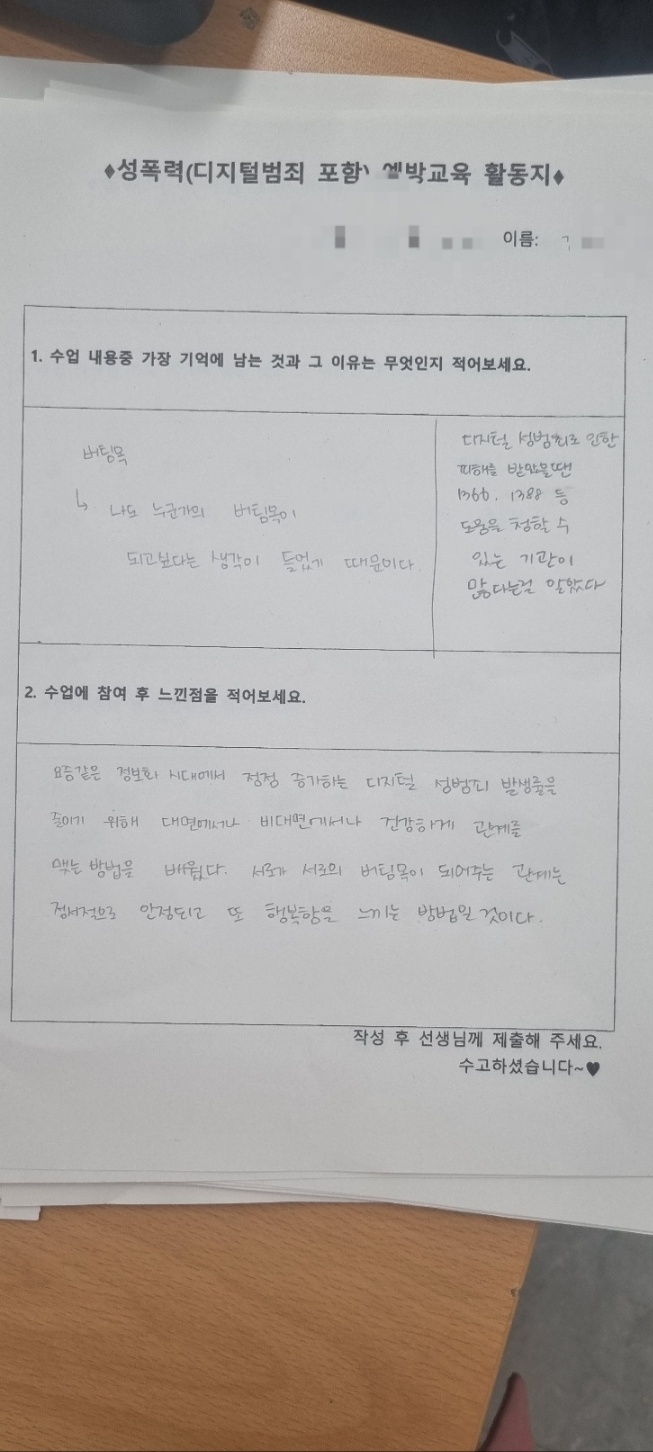 ♦성폭력(디지털범죄 포함) 예방교육 활동지♦
이름:
1. 수업 내용중 가장 기억에 남는 것과 그 이유는 무엇인지 적어보세요.
버팀목
↳ 나도 누군가의 버팀목이
되고싶다는 생각이 들었기 때문이다.
디지털 성범죄로 인한
피해를 받았을땐
1366, 1388 등
도움을 청할 수
있는 기관이
많다는걸 알았다
2. 수업에 참여 후 느낀점을 적어보세요.
요즘같은 정보화 시대에서 점점 증가하는 디지털 성범죄 발생률을
줄이기 위해 대면에서나 비대면에서나 건강하게 관계를
맺는 방법을 배웠다. 서로가 서로의 버팀목이 되어주는 관계는
정서적으로 안정되고 또 행복함을 느끼는 방법일 것이다.
작성 후 선생님께 제출해 주세요.
수고하셨습니다~♥